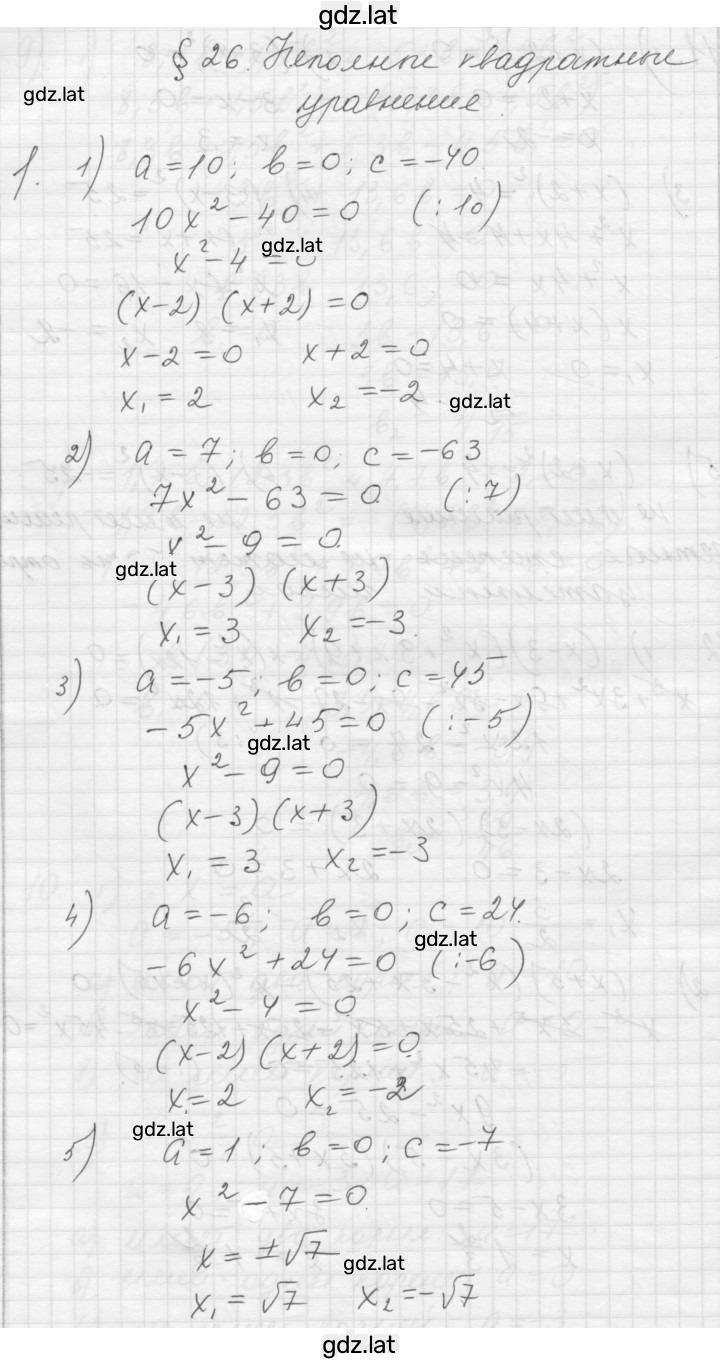 gdz.lat
§ 26. Неполные квадратные
gdz.lat
уравнение
1. 1) a = 10; b = 0; c = -40
10x² - 40 = 0 (: 10)
gdz.lat
x² - 4 = 0
(x-2) (x+2) = 0
x - 2 = 0 x + 2 = 0
x₁ = 2 x₂ = -2
gdz.lat
2) a = 7; b = 0; c = -63
7x² - 63 = 0 (: 7)
x² - 9 = 0
gdz.lat
(x-3) (x+3)
x₁ = 3 x₂ = -3
3) a = -5; b = 0; c = 45
-5x² + 45 = 0 (:-5)
gdz.lat
x² - 9 = 0
(x-3) (x+3)
x₁ = 3 x₂ = -3
4) a = -6; b = 0; c = 24
gdz.lat
-6x² + 24 = 0 (:-6)
x² - 4 = 0
(x-2) (x+2) = 0
x₁ = 2 x₂ = -2
gdz.lat
5) a = 1; b = 0; c = -7
x² - 7 = 0
x = ±√7
gdz.lat
x₁ = √7 x₂ = -√7
gdz.lat